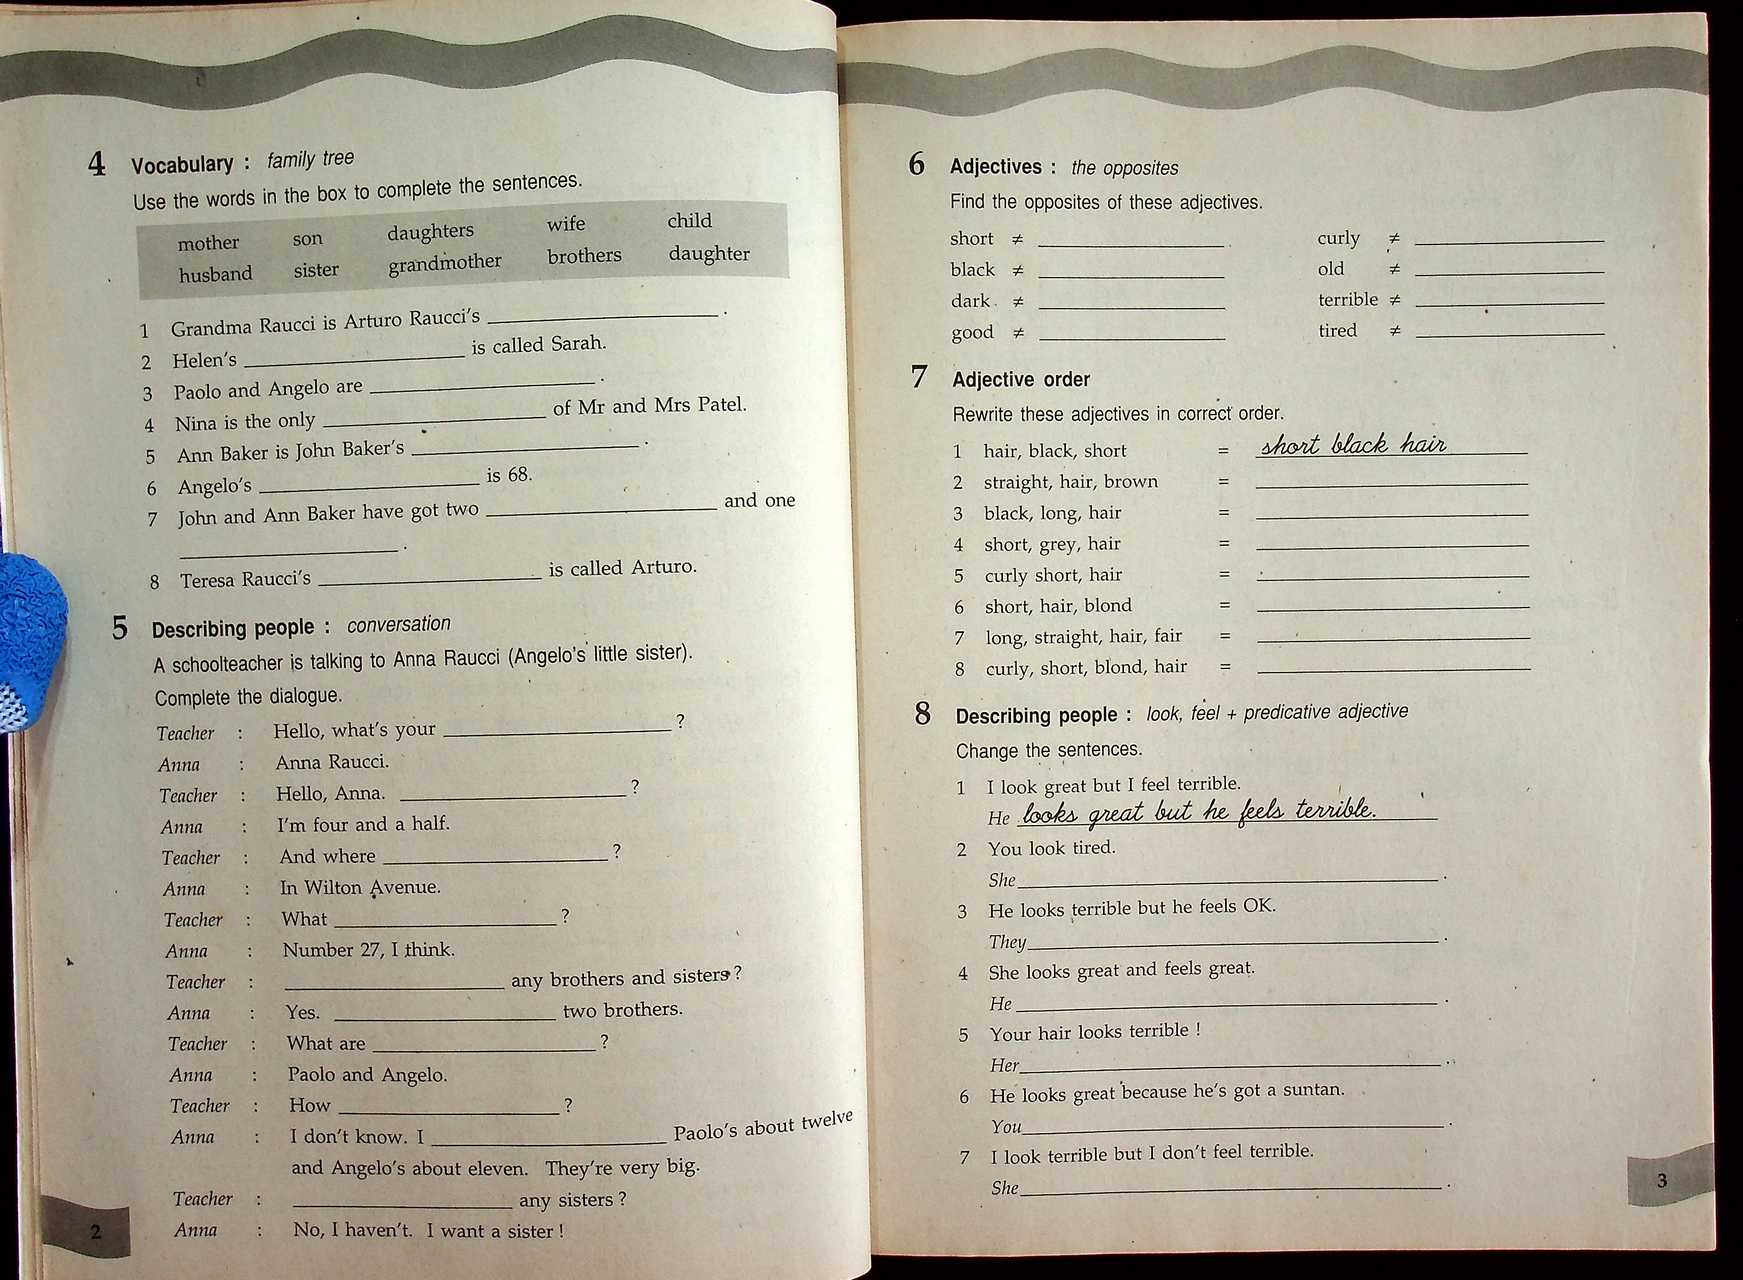 4 Vocabulary : family tree
Use the words in the box to complete the sentences.
mother son daughters wife child
husband sister grandmother brothers daughter
1 Grandma Raucci is Arturo Raucci's ____________ .
2 Helen's ____________ is called Sarah.
3 Paolo and Angelo are ____________ .
4 Nina is the only ____________ of Mr and Mrs Patel.
5 Ann Baker is John Baker's ____________ .
6 Angelo's ____________ is 68.
7 John and Ann Baker have got two ____________ and one
____________ .
8 Teresa Raucci's ____________ is called Arturo.
5 Describing people : conversation
A schoolteacher is talking to Anna Raucci (Angelo's little sister).
Complete the dialogue.
Teacher : Hello, what's your ____________ ?
Anna : Anna Raucci.
Teacher : Hello, Anna. ____________ ?
Anna : I'm four and a half.
Teacher : And where ____________ ?
Anna : In Wilton Avenue.
Teacher : What ____________ ?
Anna : Number 27, I think.
Teacher : ____________ any brothers and sisters ?
Anna : Yes. ____________ two brothers.
Teacher : What are ____________ ?
Anna : Paolo and Angelo.
Teacher : How ____________ ?
Anna : I don't know. I ____________ Paolo's about twelve
and Angelo's about eleven. They're very big.
Teacher : ____________ any sisters ?
Anna : No, I haven't. I want a sister !
2
6 Adjectives : the opposites
Find the opposites of these adjectives.
short ≠ ____________ curly ≠ ____________
black ≠ ____________ old ≠ ____________
dark ≠ ____________ terrible ≠ ____________
good ≠ ____________ tired ≠ ____________
7 Adjective order
Rewrite these adjectives in correct order.
1 hair, black, short = short black hair
2 straight, hair, brown = ____________
3 black, long, hair = ____________
4 short, grey, hair = ____________
5 curly short, hair = ____________
6 short, hair, blond = ____________
7 long, straight, hair, fair = ____________
8 curly, short, blond, hair = ____________
8 Describing people : look, feel + predicative adjective
Change the sentences.
1 I look great but I feel terrible.
He looks great but he feels terrible.
2 You look tired.
She ____________ .
3 He looks terrible but he feels OK.
They ____________ .
4 She looks great and feels great.
He ____________ .
5 Your hair looks terrible !
Her ____________ .
6 He looks great because he's got a suntan.
You ____________ .
7 I look terrible but I don't feel terrible.
She ____________ .
3